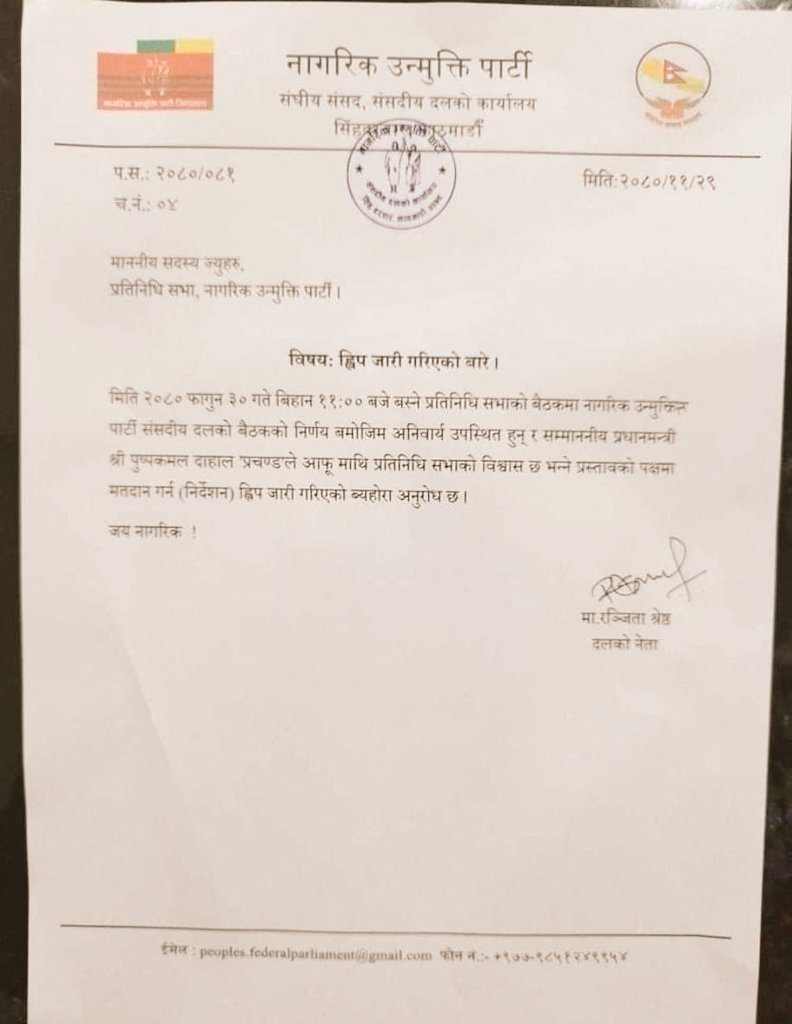 नागरिक उन्मुक्ति पार्टी
संघीय संसद, संसदीय दलको कार्यालय
प.स.: २०८०/०८१
मिति:२०८०/११/२९
च.नं.: ०४
माननीय सदस्य ज्युहरु,
प्रतिनिधि सभा, नागरिक उन्मुक्ति पार्टी ।
विषय: ह्विप जारी गरिएको बारे ।
मिति २०८० फागुन ३० गते बिहान ११:०० बजे बस्ने प्रतिनिधि सभाको बैठकमा नागरिक
पार्टी संसदीय दलको बैठकको निर्णय बमोजिम अनिवार्य उपस्थित हुन् र सम्माननीय प्रधानमन्त्री
श्री पुष्पकमल दाहाल 'प्रचण्ड'ले आफू माथि प्रतिनिधि सभाको विश्वास छ भन्ने प्रस्तावको पक्षमा
मतदान गर्न (निर्देशन) ह्विप जारी गरिएको ब्यहोरा अनुरोध छ।
जय नागरिक !
मा.रञ्जिता श्रेष्ठ
दलको नेता
ईमेल : peoples.federalparliament@gmail.com फोन नं.:- +९७७-९८५१२४९९५४